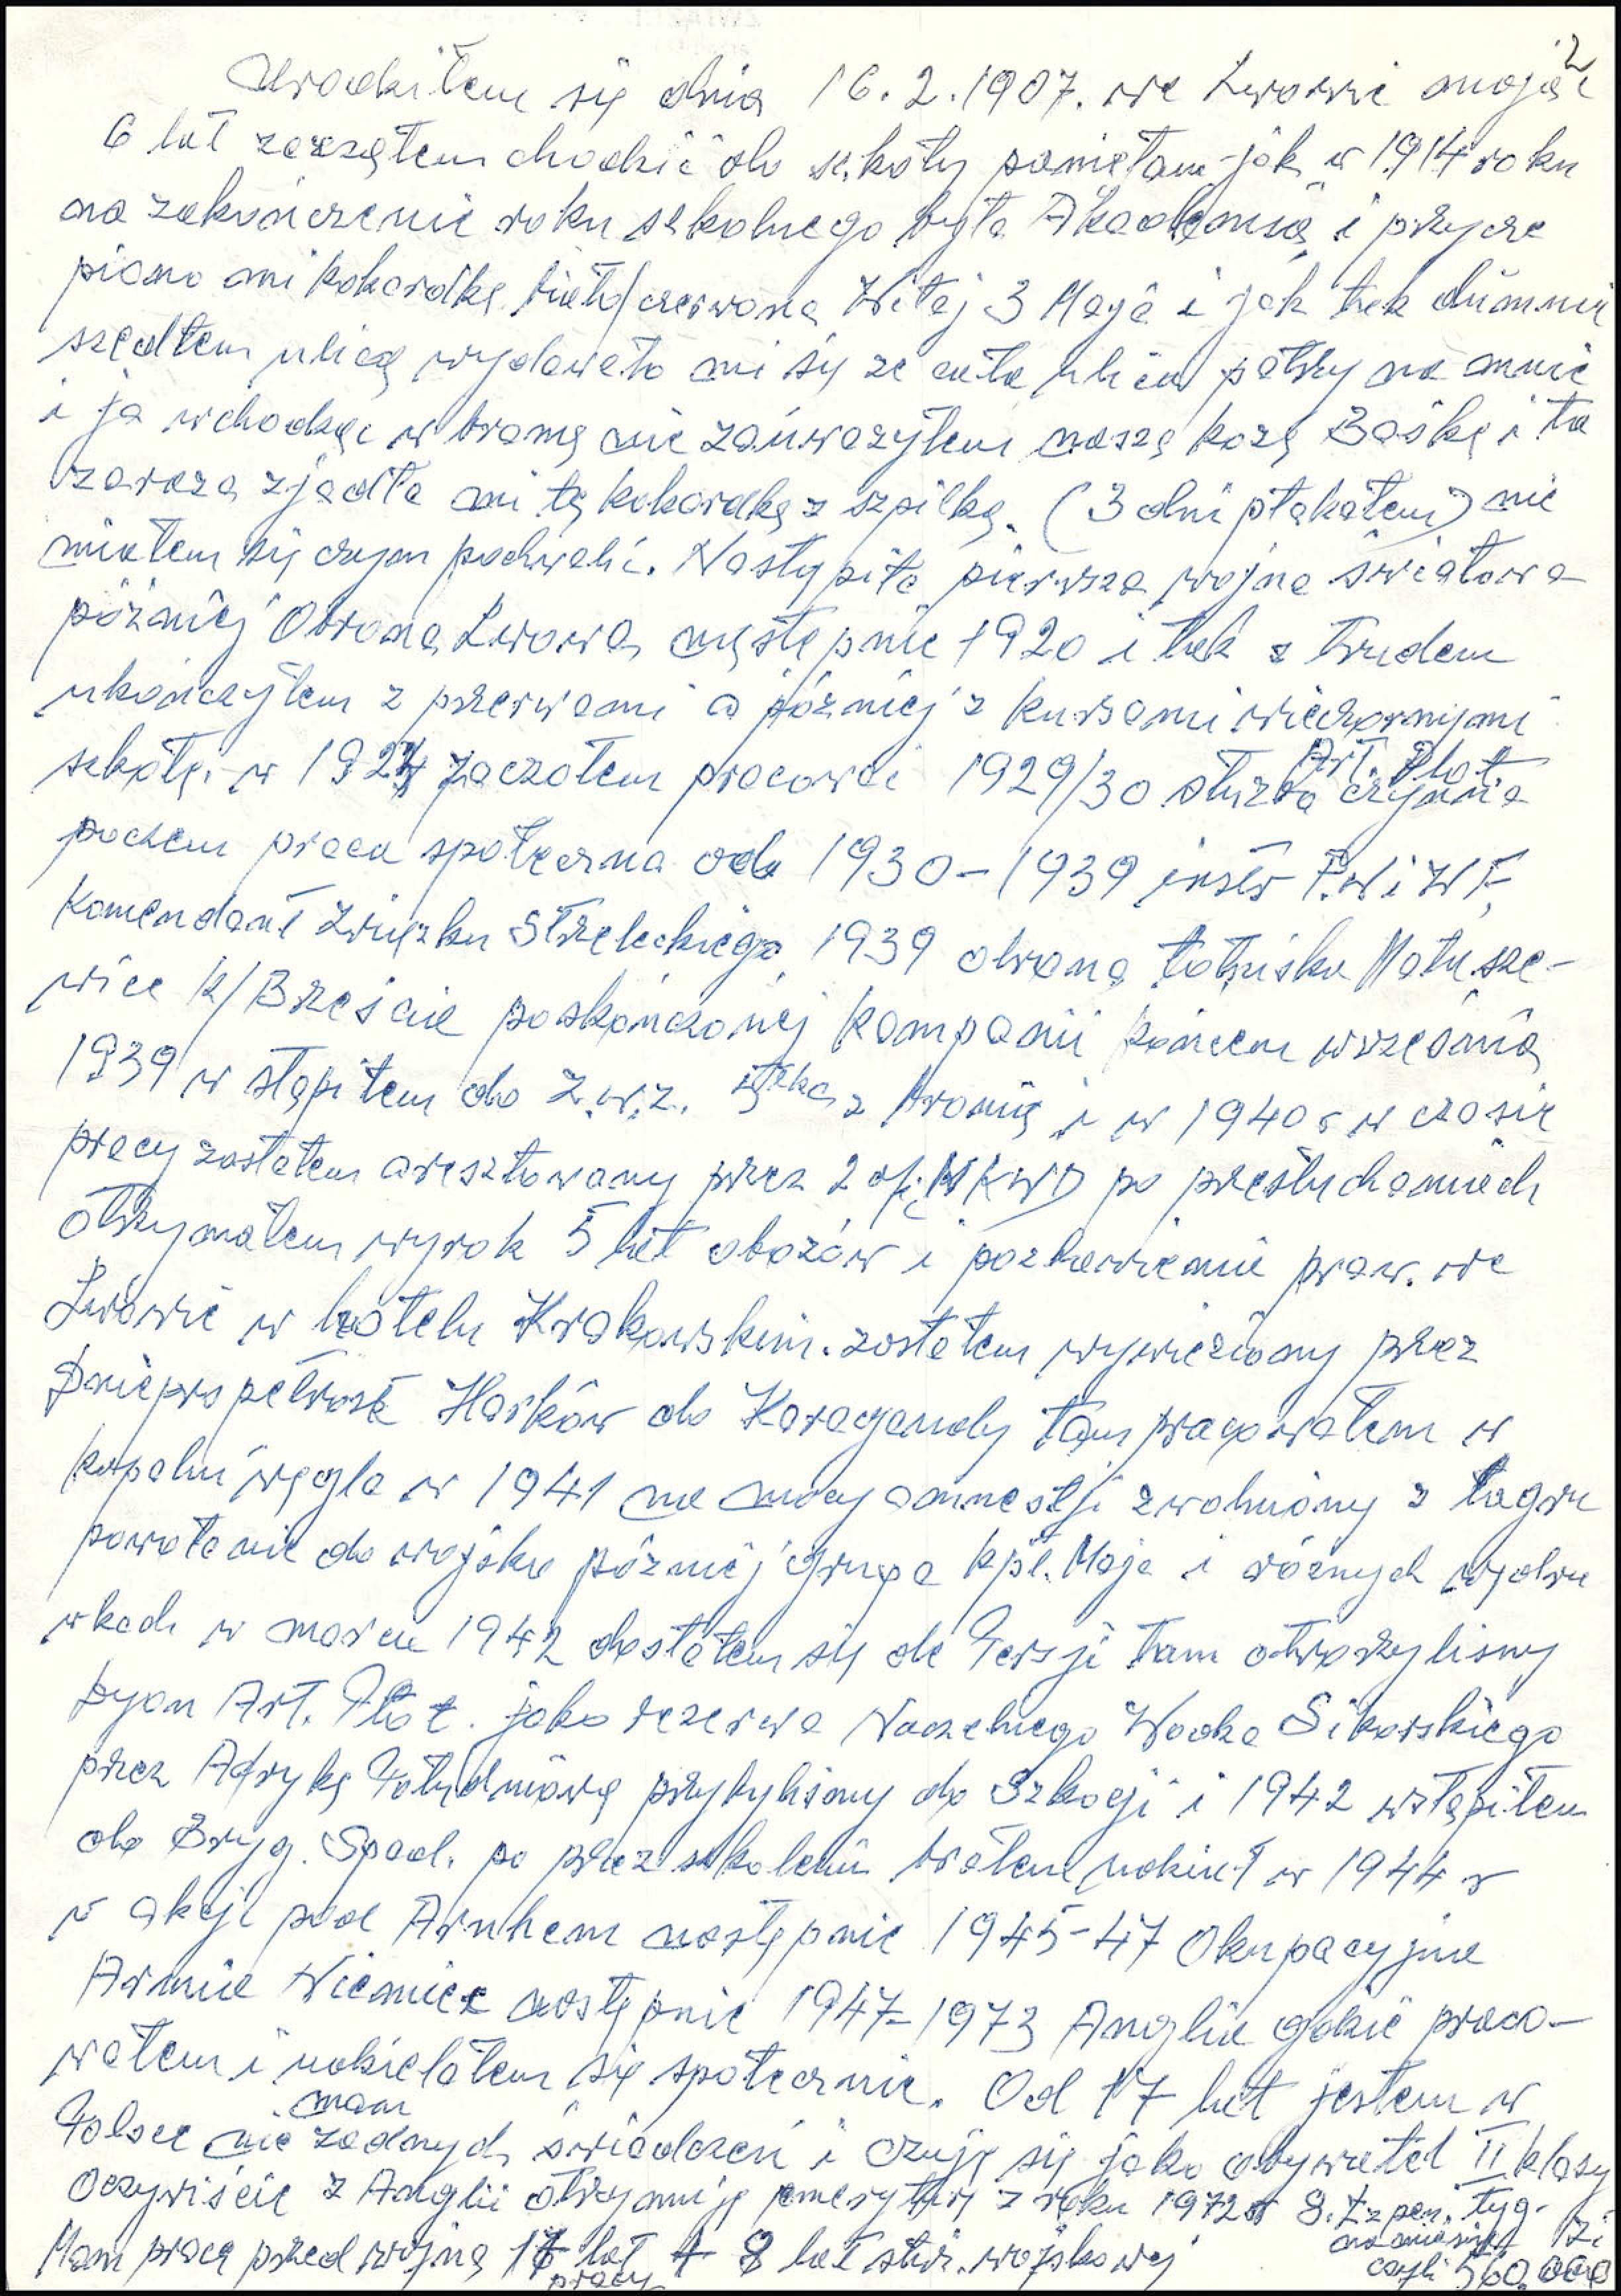 2
Urodziłem się dnia 16.2.1907. we Lwowie mając
6 lat zacząłem chodzić do szkoły pamiętam jak w 1914 roku
na zakończenie roku szkolnego była Akademia i przycze
piono mi kokardkę biało/czerwoną Witaj 3 Maja i jak tak dumnie
szedłem ulicą wydawało mi się że cała ulica patrzy na mnie
i ja wchodząc w bramę nie zauważyłem naszą kozę Baśkę i ta
zaraza zjadła mi tą kokardkę z szpilką. (3 dni płakałem) nie
miałem się czym pochwalić. Nastąpiła pierwsza wojna światowa
później Obrona Lwowa następnie 1920 i tak z trudem
ukończyłem z przerwami a później z kursami wieczornymi
szkołę. w 1924 zaczołem pracować 1929/30 służba czynna Art. Plot.
poczem praca społeczna od 1930-1939 instr P.W i W F,
Komendant Związku Strzeleckiego 1939 obrona lotniska Matusze-
wice k/Brześcia poskończonej kampanii końcem września
1939 wstąpiłem do Z.W.Z. z bronią i w 1940 r w czasie
pracy zostałem aresztowany przez 2 of. NKWD po przesłuchaniach
otrzymałem wyrok 5 lat obozów i pozbawienie praw. we
Lwowie w hotelu Krakowskim. zostałem wywieziony przez
Dniepropetrosk Harków do Karagandy tam pracowałem w
kopalni węgla w 1941 na mocy amnestji zwolniony z łagru
powołanie do wojska później grupa kpt. Maja i różnych wędru
wkach w marcu 1942 dostałem się do Persji tam otworzylismy
Dyon Art. Plot. jako rezerwa Naczelnego Wodza Sikorskiego
przez Afrykę Południową przybylismy do Szkocji i 1942 wstąpiłem
do Bryg. Spad. po przeszkoleniu brałem udział w 1944 r
w akcji pod Arnhem następnie 1945-47 Okupacyjna
Armia Niemiec następnie 1947-1973 Anglia gdzie praco-
wałem i udzielałem się społecznie. Od 17 lat jestem w
Polsce nie mam żadnych świadczeń i czuję się jako obywatel II klasy
Oczywiście z Anglii otrzymuję emeryturę z roku 1972 8. £ z pen. tyg.
Mam pracę przed wojną lat pracy + 8 lat służ. wojskowej na miesiąc czyli 560.000 zł